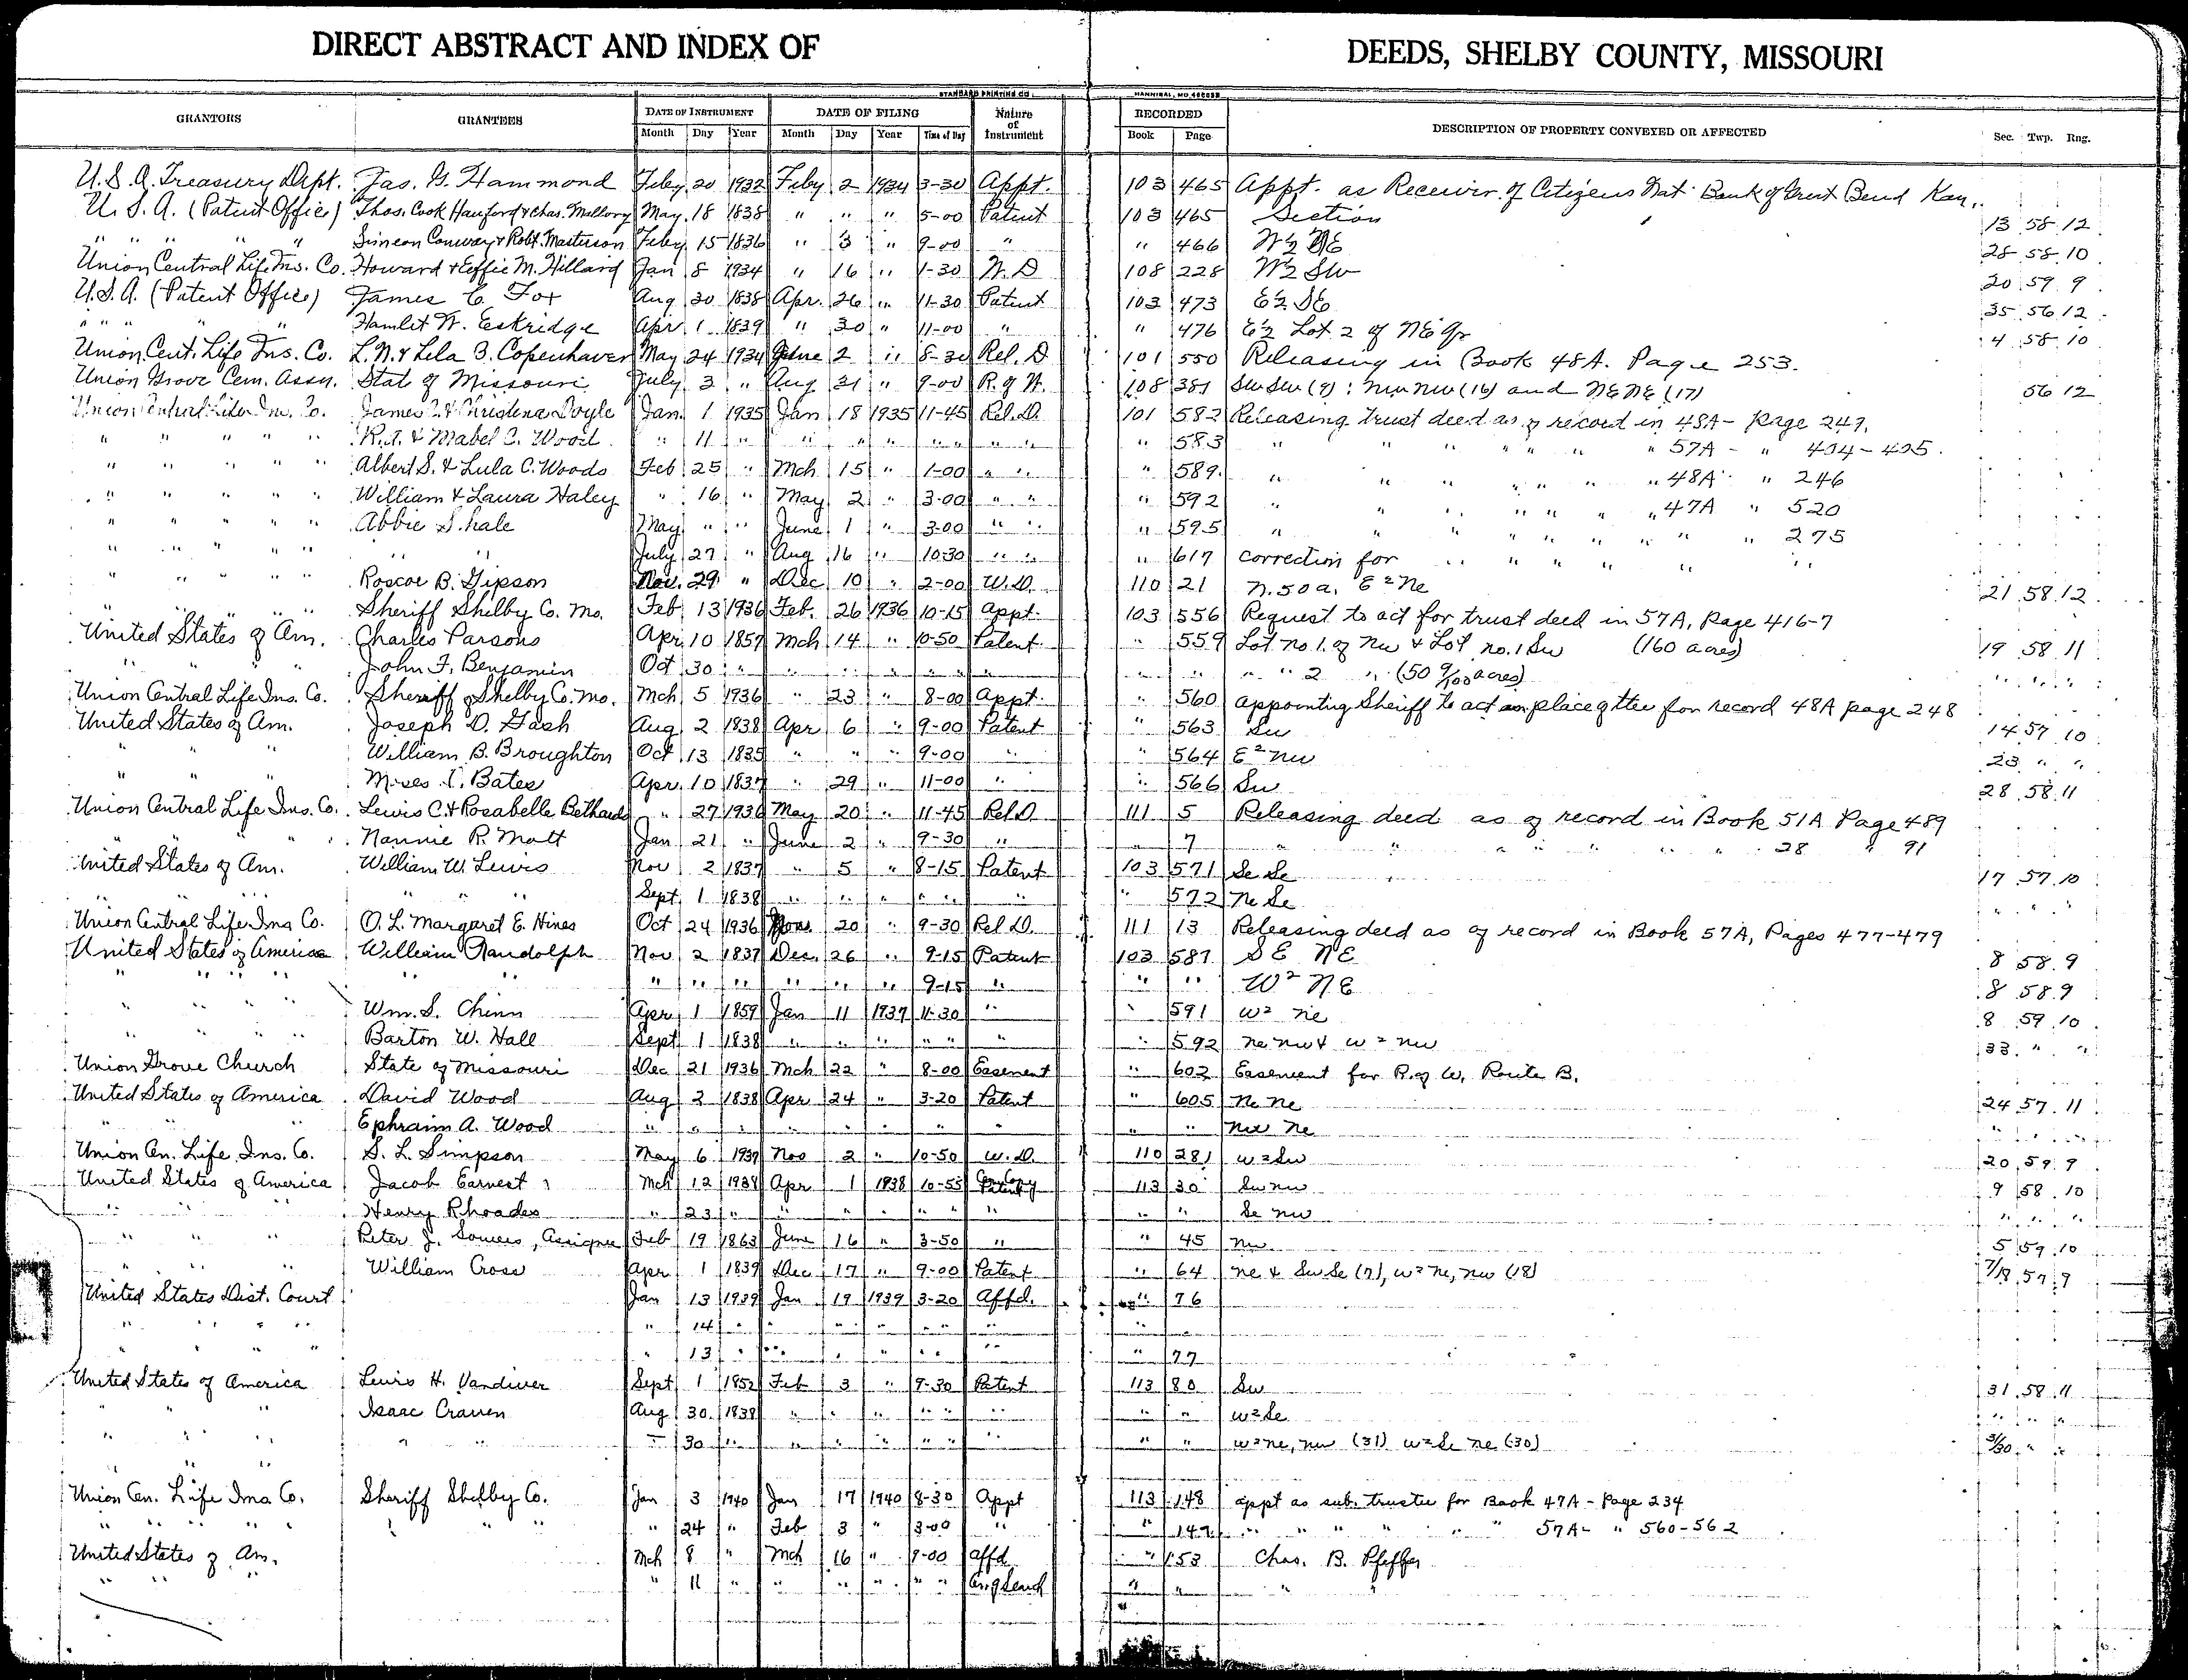 DIRECT ABSTRACT AND INDEX OF DEEDS, SHELBY COUNTY, MISSOURI
STANDARD PRINTING CO HANNIBAL, MO
GRANTORS GRANTEES DATE OF INSTRUMENT DATE OF FILING Nature of Instrument RECORDED DESCRIPTION OF PROPERTY CONVEYED OR AFFECTED Sec. Twp. Rng.
Month Day Year Month Day Year Time of Day Book Page
U.S.A. Treasury Dept. Jas. G. Hammond Feby 20 1932 Feby 2 1934 3-30 Appt. 103 465 Appt. as Receiver of Citizens Nat. Bank of Great Bend Kan.
U.S.A. (Patent Office) Thos. Cook Hanford & Chas. Mallory May 18 1838 " " " 5-00 Patent 103 465 Section 13 58 12
" " " " " Simeon Conway & Robt. Masterson Feby 15 1836 " 3 " 9-00 " " 466 W½ NE 28 58 10
Union Central Life Ins. Co. Howard & Effie M. Hillard Jan 8 1934 " 16 " 1-30 W. D 108 228 W½ SW 20 59 9
U.S.A. (Patent Office) James C. Fox Aug 20 1838 Apr. 26 " 11-30 Patent 103 473 E½ SE 35 56 12
" " " " " Hamlet W. Eskridge Apr. 1 1839 " 30 " 11-00 " " 476 E½ Lot 2 of NE Qr 4 58 10
Union Cent. Life Ins. Co. L.N. & Lela B. Copenhaver May 24 1934 June 2 " 8-30 Rel. D 101 550 Releasing in Book 48A. Page 253.
Union Grove Cem. Assn. Stat of Missouri July 3 " Aug 31 " 9-00 R. of W. 108 381 SW SW (9) : NW NW (16) and NE NE (17) 56 12
Union Central Life Ins. Co. James C. & Christena Doyle Jan. 1 1935 Jan 18 1935 11-45 Rel. D. 101 582 Releasing trust deed as of record in 48A - page 247.
" " " " " R.T. & Mabel C. Wood " 11 " " " " " " " " " 583 " " " " " " 57A - " 434-435.
" " " " " Albert S. & Lula C. Woods Feb 25 " Mch 15 " 1-00 " " " 589. " " " " " " " 48A " 246
" " " " " William & Laura Haley " 16 " May 2 " 3-00 " " " 592 " " " " " " " 47A " 520
" " " " " Abbie S. hale May " " June 1 " 3-00 " " " 595 " " " " " " " " " 275
" " " " " " " July 27 " Aug 16 " 10-30 " " " 617 correction for " " " " " "
" " " " " Roscoe B. Gipson Nov. 29 " Dec 10 " 2-00 W.D. 110 21 N. 50 a. E² Ne 21 58 12
" " " " " Sheriff Shelby Co. Mo. Feb 13 1936 Feb. 26 1936 10-15 appt. 103 556 Request to act for trust deed in 57A, page 416-7
United States of Am. Charles Parsons Apr 10 1857 Mch 14 " 10-50 Patent " 559 Lot no. 1. of Nw & Lot no. 1 Sw (160 acres) 19 58 11
" " " John F. Benjamin Oct 30 " " " " " " " " " " 2 " (50 9/100 acres) " " "
Union Central Life Ins. Co. Sheriff Shelby Co. Mo. Mch 5 1936 " 23 " 8-00 Appt. " 560 appointing Sheriff to act in place of ttee for record 48A page 248
United States of Am. Joseph D. Gash Aug 2 1838 Apr 6 " 9-00 Patent " 563 Sw 14 57 10
" " " William B. Broughton Oct 13 1835 " " " 9-00 " " 564 E² nw 23 " "
" " " Moses D. Bates Apr. 10 1837 " 29 " 11-00 " " 566 Sw 28 58 11
Union Central Life Ins. Co. Lewis C. & Rosabelle Bethards " 27 1936 May 20 " 11-45 Rel D 111 5 Releasing deed as of record in Book 51A Page 489
" " " Nannie R. Mott Jan 21 " June 2 " 9-30 " " 7 " " " " " " " 28 " 91
United States of Am. William W. Lewis Nov 2 1837 " 5 " 8-15 Patent 103 571 Se Se 17 57 10
" " " " Sept 1 1838 " " " " " " " 572 Ne Se " " "
Union Central Life Ins Co. O. L. Margaret E. Hines Oct 24 1936 Nov 20 " 9-30 Rel D. 111 13 Releasing deed as of record in Book 57A, Pages 477-479
United States of America William Randolph Nov 2 1837 Dec. 26 " 9-15 Patent 103 587 SE NE 8 58 9
" " " " " " " " " " " 9-15 " " " W² NE 8 58 9
" " " Wm. S. Chinn Apr 1 1859 Jan 11 1937 11-30 " " 591 W² ne 8 59 10
" " " Barton W. Hall Sept 1 1838 " " " " " " 592 ne nw & w² nw 33 " "
Union Grove Church State of Missouri Dec 21 1936 Mch 22 " 8-00 Easement " 602 Easement for R. of W. Route B.
United States of America David Wood Aug 2 1838 Apr 24 " 3-20 Patent " 605 ne ne 24 57 11
" " " Ephraim A. Wood " " " " " " " " " " nw ne " " "
Union Cen. Life Ins. Co. S. L. Simpson May 6 1937 Nov 2 " 10-50 W. D. 110 281 w² Sw 20 59 9
United States of America Jacob Earnest Mch 12 1938 Apr 1 1938 10-55 Patent 113 30 Sw nw 9 58 10
" " " Henry Rhoades " 23 " " " " " " " " Se nw " " "
" " " Peter J. Sowers, Assignee Feb 19 1863 June 16 " 3-50 " " 45 nw 5 59 10
" " " William Cross Apr 1 1839 Dec 17 " 9-00 Patent " 64 ne & Sw Se (7), w² ne, nw (18) 7/18 57 9
United States Dist. Court Jan 13 1939 Jan 19 1939 3-20 Affd. " 76
" " " " " 14 " " " " " " " " "
" " " " 13 " " " " " " " " 77
United States of America Lewis H. Vandiver Sept 1 1852 Feb 3 " 9-30 Patent 113 80 Sw 31 58 11
" " " Isaac Craven Aug 30 1838 " " " " " " " " w² Se " " "
" " " " " " 30 " " " " " " " " w² ne, nw (31) w² Se ne (30) 31/30 " "
" "
Union Cen. Life Ins Co. Sheriff Shelby Co. Jan 3 1940 Jan 17 1940 8-30 Appt 113 148 appt as sub. trustee for Book 47A - Page 234
" " " " " " " " 24 " Feb 3 " 3-00 " " 149 " " " " " " 57A - " 560-562
United States of Am. Mch 8 " Mch 16 " 9-00 affd. " 153 Chas. B. Pfeffer
" " " " 11 " " " " " " " " " "